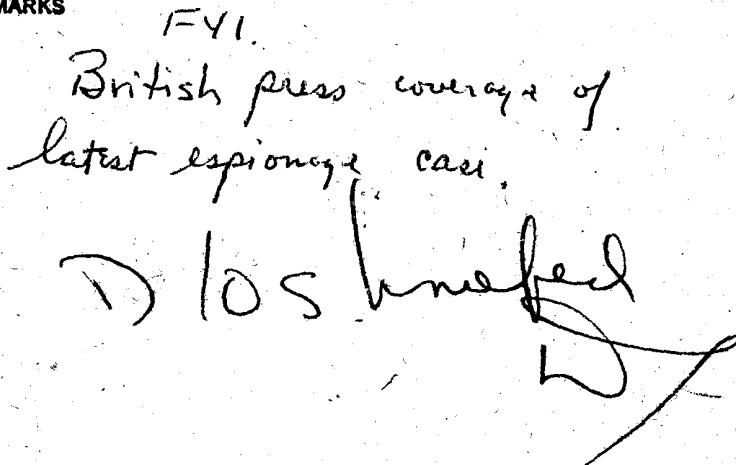 MARKS
FYI.
British press coverage of
latest espionage case.
D/OS